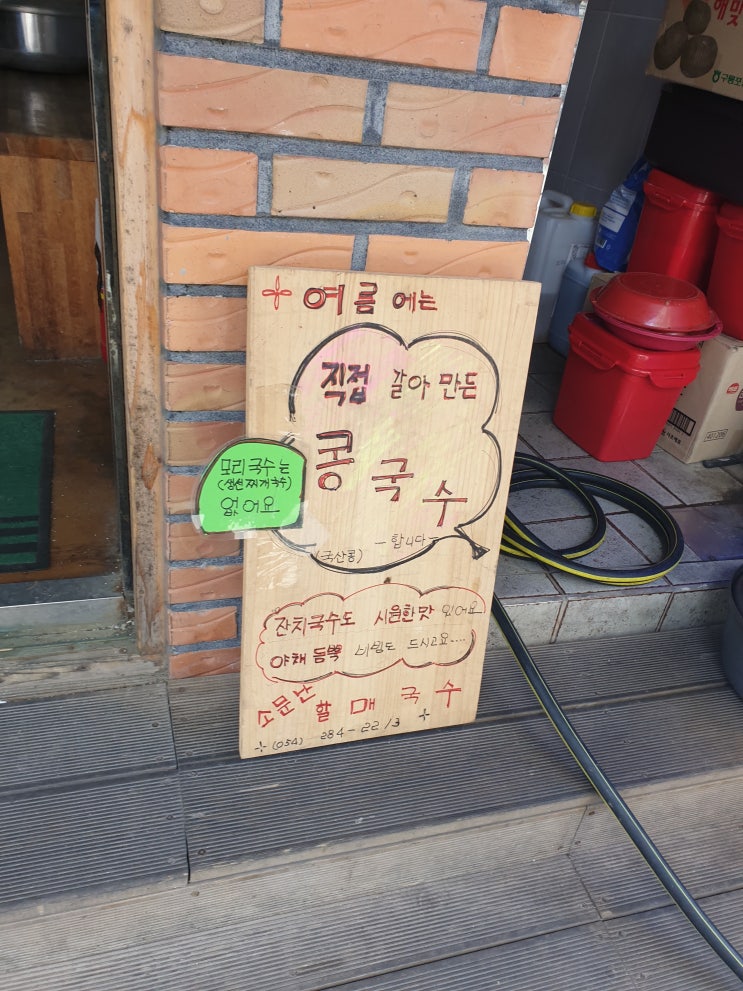 여름에는
직접 갈아 만든
콩국수
- 합니다 -
(국산콩)
모리국수는
(생선찌개국수)
없어요
잔치국수도 시원한맛 있어요
야채 듬뿍 비빔도 드시고요....
소문난 할매국수
(054) 284-2213
해맛
구룡포